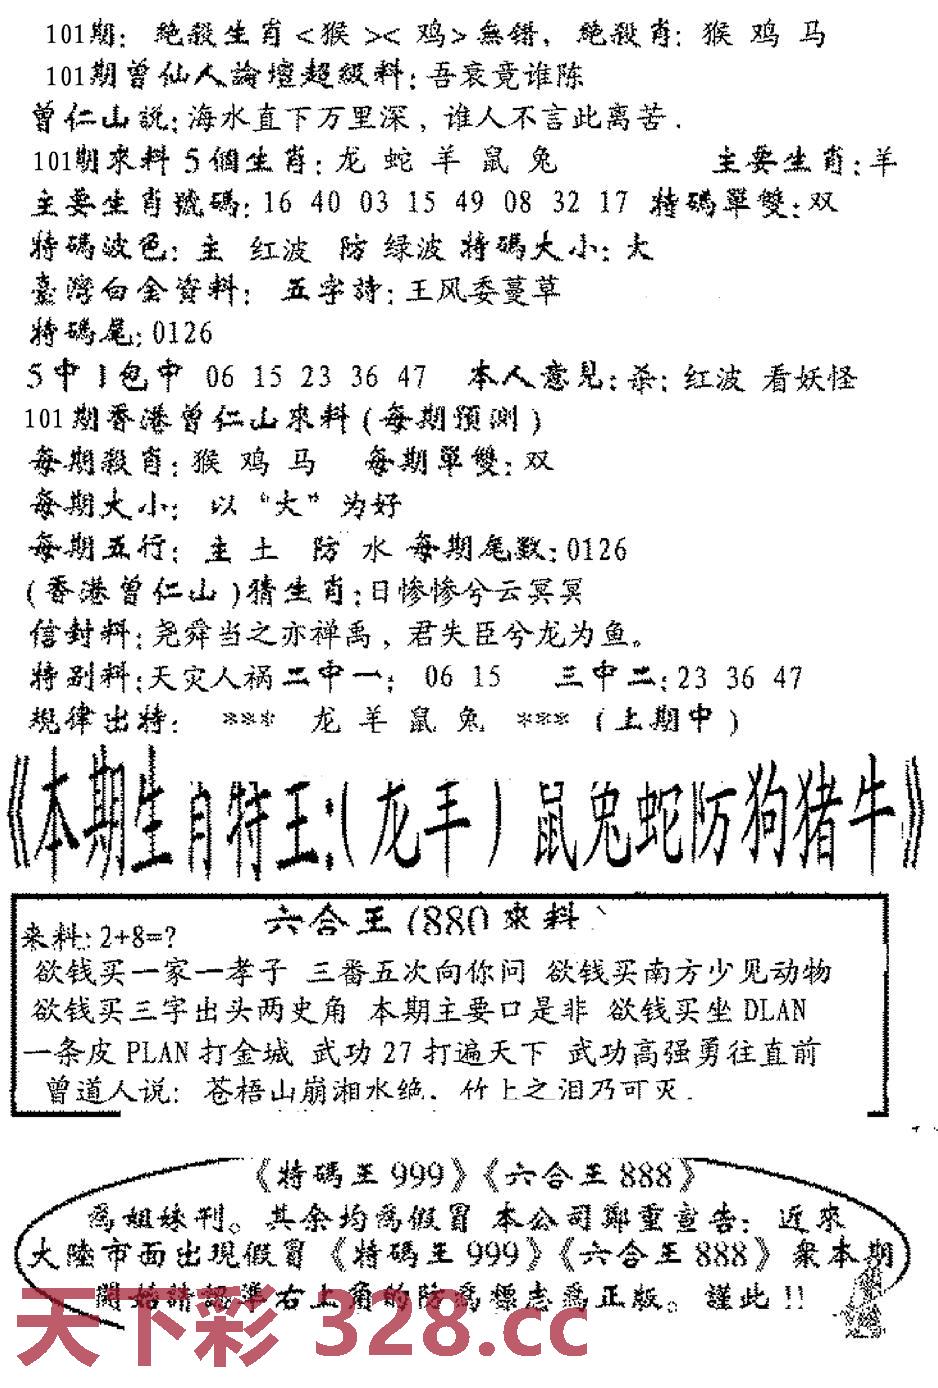 101期: 絶殺生肖<猴><鸡>無錯, 絶殺肖: 猴 鸡 马
101期曾仙人論壇超級料:吾衰竟谁陈
曾仁山説:海水直下万里深, 谁人不言此离苦.
101期來料 5 個生肖: 龙 蛇 羊 鼠 兔 主要生肖:羊
主要生肖號碼:16 40 03 15 49 08 32 17 特碼單雙:双
特碼波色: 主 红波 防 绿波 特碼大小: 大
臺灣白金資料: 五字詩:王风委蔓草
特碼尾:0126
5 中 1 包中 06 15 23 36 47 本人意見:杀: 红波 看妖怪
101期香港曾仁山來料(每期預測)
每期殺肖:猴 鸡 马 每期單雙:双
每期大小: 以“大”为好
每期五行: 主 土 防 水 每期尾数:0126
(香港曾仁山)猜生肖:日惨惨兮云冥冥
信封料:尧舜当之亦禅禹, 君失臣兮龙为鱼。
特别料:天灾人祸二中一: 06 15 三中二:23 36 47
規律出特: *** 龙 羊 鼠 兔 *** (上期中)
《本期生肖特王:(龙羊)鼠兔蛇防狗猪牛》
六合王(880來料)
来料: 2+8=?
欲钱买一家一孝子 三番五次向你问 欲钱买南方少见动物
欲钱买三字出头两史角 本期主要口是非 欲钱买坐 DLAN
一条皮 PLAN 打金城 武功 27 打遍天下 武功高强勇往直前
曾道人说: 苍梧山崩湘水绝, 竹上之泪乃可灭.
《特碼王 999》《六合王 888》
爲姐妹刊。其余均爲假冒 本公司鄭重宣告: 近來
大陸市面出現假冒《特碼王 999》《六合王 888》衆本期
開始請認準右上角的防爲標志爲正版。謹此!!
天下彩 328.cc